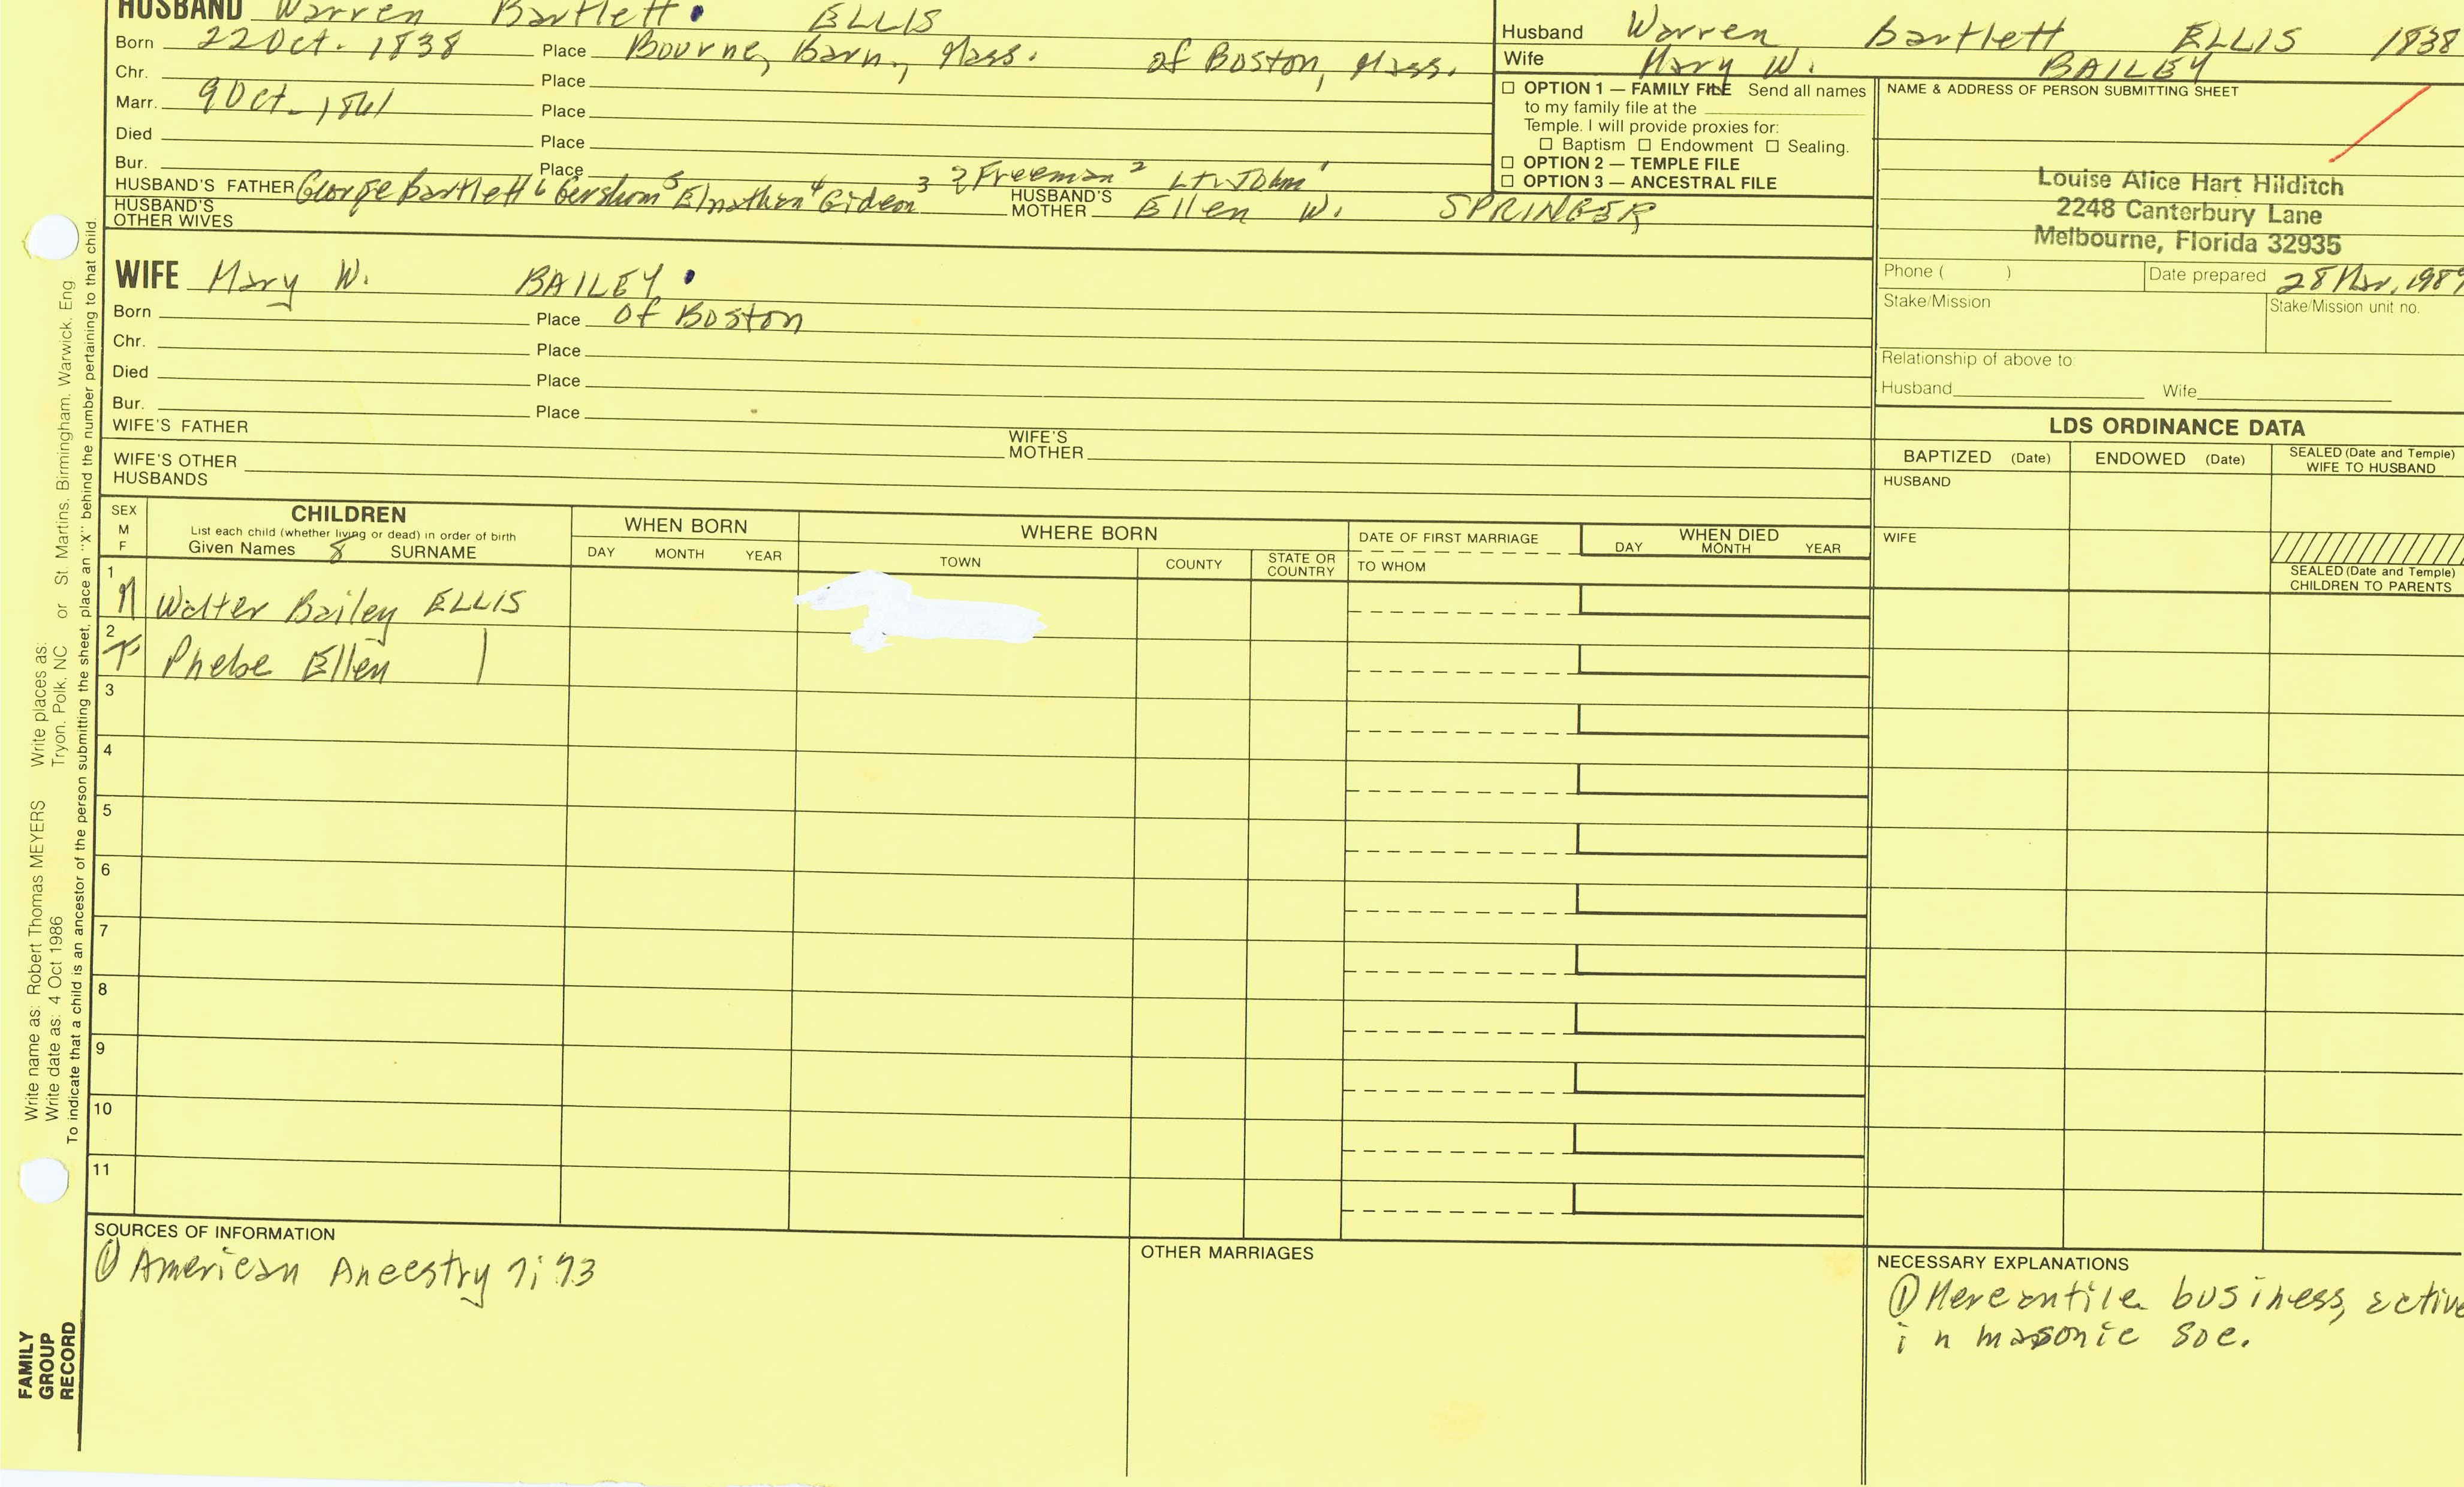 HUSBAND Warren Bartlett ELLIS
Born 22 Oct. 1838 Place Bourne, Barn., Mass. of Boston, Mass.
Chr. Place
Marr. 9 Oct. 1861 Place
Died Place
Bur. Place
HUSBAND'S FATHER George Bartlett 6 Gershom 5 Elnathan 4 Gideon 3 Freeman 2 Lt. John 1 HUSBAND'S MOTHER Ellen W. SPRINGER
HUSBAND'S OTHER WIVES
WIFE Mary W. BAILEY
Born Place of Boston
Chr. Place
Died Place
Bur. Place
WIFE'S FATHER WIFE'S MOTHER
WIFE'S OTHER HUSBANDS
Husband Warren Bartlett ELLIS 1838
Wife Mary W. BAILEY
OPTION 1 — FAMILY FILE Send all names
to my family file at the
Temple. I will provide proxies for:
Baptism Endowment Sealing.
OPTION 2 — TEMPLE FILE
OPTION 3 — ANCESTRAL FILE
NAME & ADDRESS OF PERSON SUBMITTING SHEET
Louise Alice Hart Hilditch
2248 Canterbury Lane
Melbourne, Florida 32935
Phone ( ) Date prepared 28 Mar. 1989
Stake/Mission Stake/Mission unit no.
Relationship of above to:
Husband Wife
LDS ORDINANCE DATA
BAPTIZED (Date) ENDOWED (Date) SEALED (Date and Temple) WIFE TO HUSBAND
HUSBAND
WIFE
SEALED (Date and Temple) CHILDREN TO PARENTS
SEX M F
CHILDREN
List each child (whether living or dead) in order of birth
Given Names 8 SURNAME
WHEN BORN
DAY MONTH YEAR
WHERE BORN
TOWN COUNTY STATE OR COUNTRY
DATE OF FIRST MARRIAGE
TO WHOM
WHEN DIED
DAY MONTH YEAR
1 M Walter Bailey ELLIS
2 F Phebe Ellen |
3
4
5
6
7
8
9
10
11
SOURCES OF INFORMATION
① American Ancestry 7; 73
OTHER MARRIAGES
NECESSARY EXPLANATIONS
① Mercantile business, active
in masonic soc.
Write name as: Robert Thomas MEYERS Write places as:
Write date as: 4 Oct 1986 Tryon, Polk, NC or St. Martins, Birmingham, Warwick, Eng
To indicate that a child is an ancestor of the person submitting the sheet, place an "X" behind the number pertaining to that child.
FAMILY
GROUP
RECORD